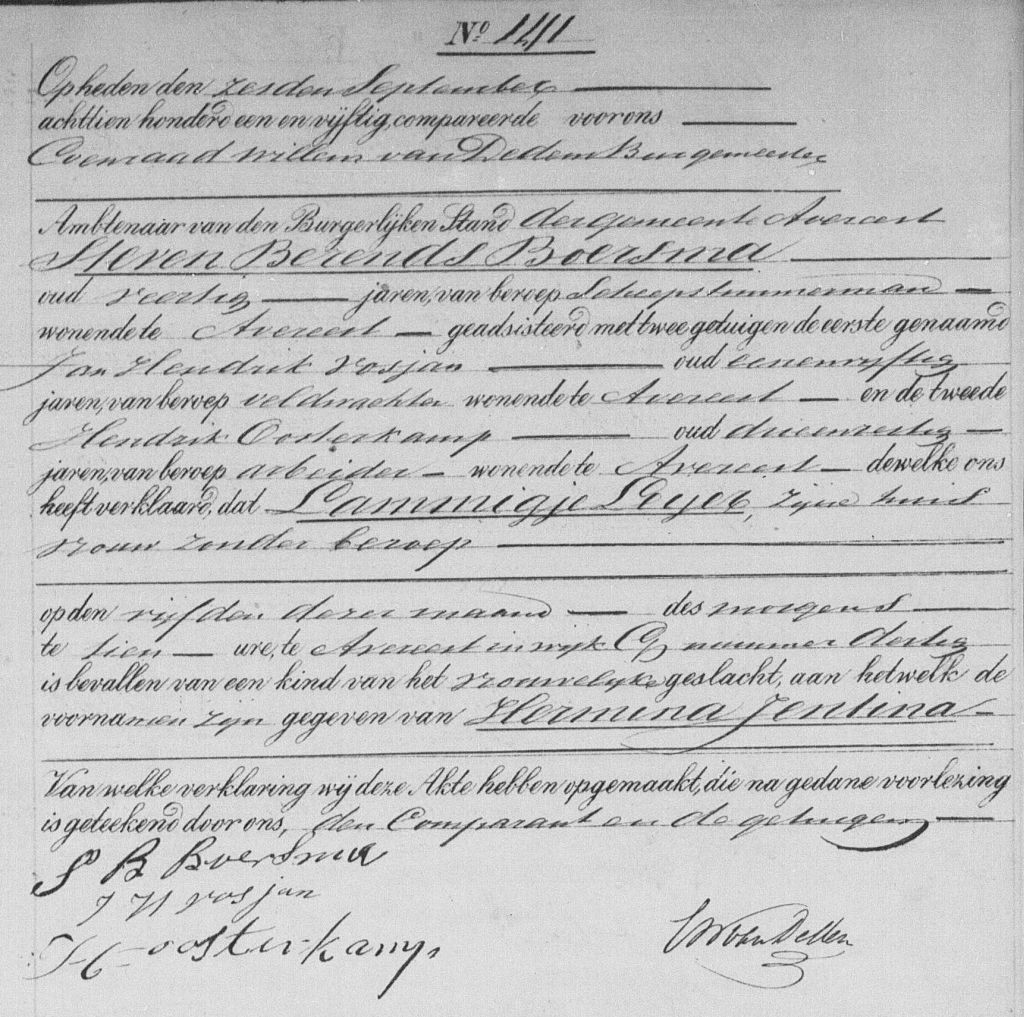 No. 141
Opheden den zesden September
achttien honderd een en vijftig, compareerde voor ons
Coenraad Willem van Dedem Burgemeester
Ambtenaar van den Burgerlijken Stand der gemeente Avereest
Steven Berends Boersma
oud veertig jaren, van beroep Scheepstimmerman
wonende te Avereest geadsisteerd met twee getuigen de eerste genaamd
Jan Hendrik Vosjan oud eenenvyftig
jaren, van beroep veldwachter wonende te Avereest en de tweede
Hendrik Oosterkamp oud drieenzestig
jaren, van beroep arbeider wonende te Avereest dewelke ons
heeft verklaard, dat Lammigje, zijne huis
vrouw zonder beroep
op den vijfden dezer maand des morgens
te tien ure, te Avereest in wijk nummer dertig
is bevallen van een kind van het vrouwelijke geslacht, aan hetwelk de
voornamen zijn gegeven van Hermina Jentina
Van welke verklaring wij deze Akte hebben opgemaakt, die na gedane voorlezing
is geteekend door ons, den Comparant en de getuigen
S B Boersma
J H vosjan
H oosterkamp
CW van Dedem